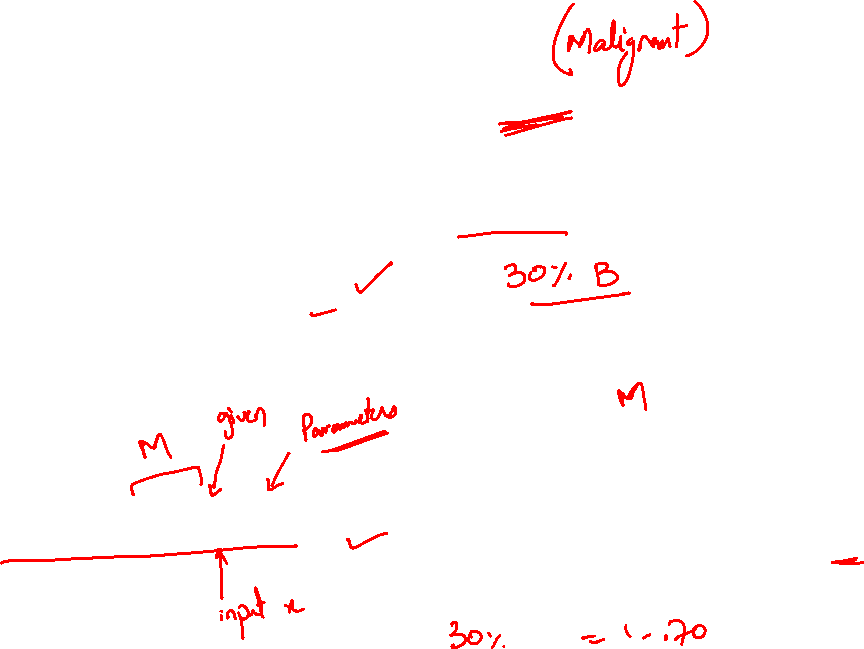 (Malignant)
30% B
M
given
Parameters
M
input x
30% = 1-.70